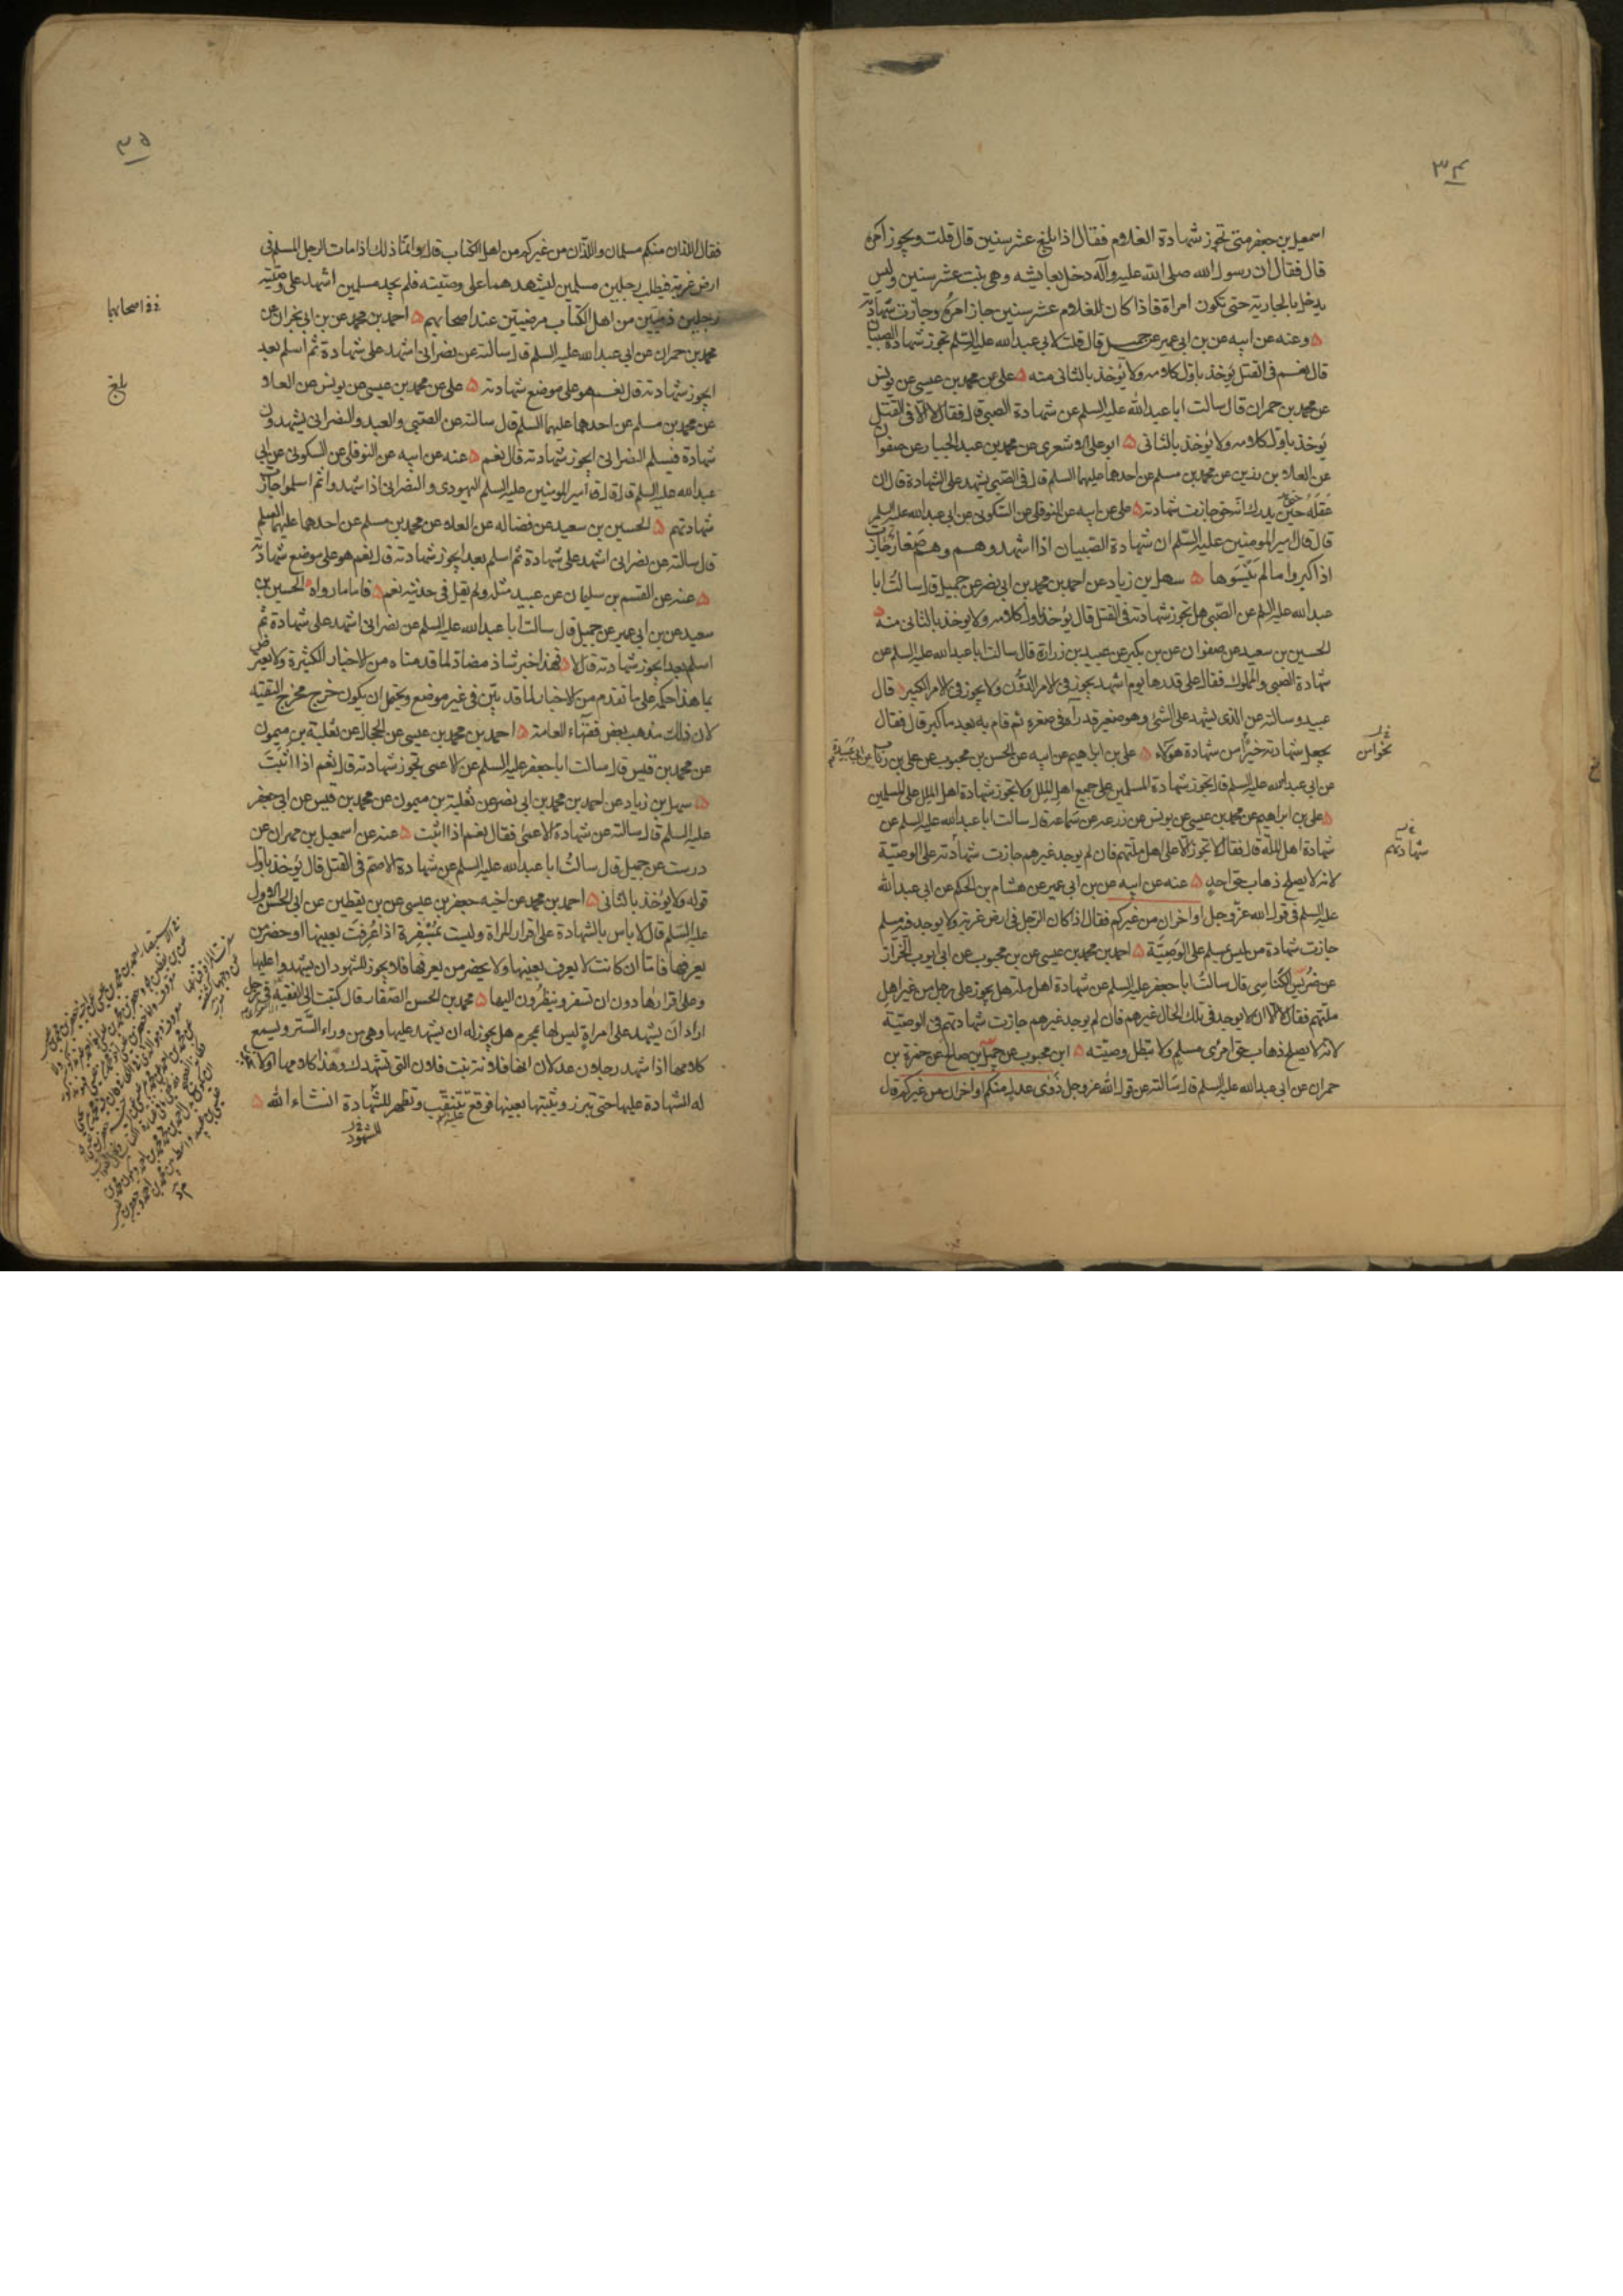 ٣٤
اسمعيل بن جعفر متى تجوز شهادة الغلام فقال اذا بلغ عشر سنين قال قلت ويجوز امره
قال فقال ان رسول الله صلى الله عليه وآله دخل بعايشه وهى بنت عشر سنين وليس
يدخل بالجارية حتى تكون امراة فاذا كان للغلام عشر سنين جاز امره وجازت شهادته
وعنه عن ابيه عن بن ابى عمير عن جميل قال قلت لابى عبد الله عليه السلم تجوز شهادة الصبيان
قال نعم فى القتل يؤخذ باول كلامه ولا يؤخذ بالثانى منه ه على عن محمد بن عيسى عن يونس
عن محمد بن حمران قال سالت ابا عبد الله عليه السلم عن شهادة الصبى قال فقال لا الا فى القتل
يؤخذ باول كلامه ولا يؤخذ بالثانى ه ابو على الاشعرى عن محمد بن عبد الجبار عن صفوان
عن العلا بن رزين عن محمد بن مسلم عن احدهما عليهما السلم قال فى الصبى يشهد على الشهادة قال ان
عقله حين يدرك انه حق جازت شهادته ه على عن ابيه عن النوفلى عن السكونى عن ابى عبد الله عليه السلم
قال قال امير المومنين عليه السلم ان شهادة الصبيان اذا اشهدوهم وهم صغار جازت
اذا كبروا ما لم ينسوها ه سهل بن زياد عن احمد بن محمد بن ابى نصر عن جميل قال سالت ابا
عبد الله عليه السلم عن الصبى هل تجوز شهادته فى القتل قال يؤخذ باول كلامه ولا يؤخذ بالثانى منه ه
الحسين بن سعيد عن صفوان عن بن بكير عن عبيد بن زرارة قال سالت ابا عبد الله عليه السلم عن
شهادة الصبى والمملوك فقال على قدرها يوم اشهد يجوز فى الامر الدون ولا يجوز فى الامر الكبير قال
عبيد وسالته عن الذى يشهد على الشئ وهو صغير قد رآه فى صغره ثم قام به بعد ما كبر قال فقال
يجعل شهادته خيرا من شهادة هؤلاء ه على بن ابراهيم عن ابيه عن الحسن بن محبوب عن على بن رئاب عن ابى عبيدة
عن ابى عبد الله عليه السلم قال يجوز شهادة المسلمين على جميع اهل الملل ولا تجوز شهادة اهل الملل على المسلمين
ه على بن ابراهيم عن محمد بن عيسى عن يونس عن زرعه عن سماعه قال سالت ابا عبد الله عليه السلم عن
شهادة اهل الملة قال فقال لا تجوز الا على اهل ملتهم فان لم يوجد غيرهم جازت شهادته على الوصية
لانه لا يصلح ذهاب حق احد ه عنه عن ابيه عن بن ابى عمير عن هشام بن الحكم عن ابى عبد الله
عليه السلم فى قول الله عز وجل او اخران من غيركم فقال اذا كان الرجل فى ارض غربة ولا يوجد فيه مسلم
جازت شهادة من ليس بمسلم على الوصية ه احمد بن محمد بن عيسى عن بن محبوب عن ابى ايوب الخزاز
عن ضريس الكناسى قال سالت ابا جعفر عليه السلم عن شهادة اهل ملة هل يجوز على رجل من غير اهل
ملتهم فقال لا الا ان لا يوجد فى تلك الحال غيرهم فان لم يوجد غيرهم جازت شهادتهم فى الوصية
لانه لا يصلح ذهاب حق امرئ مسلم ولا تبطل وصيته ه ابن محبوب عن جميل بن صالح عن حمزة بن
حمران عن ابى عبد الله عليه السلم قال سالته عن قول الله عز وجل ذوى عدل منكم او اخران من غيركم قال
شهادتهم
٣٥
فقال اللذان منكم مسلمان واللذان من غيركم من اهل الكتاب قال وانما ذلك اذا مات الرجل المسلم فى
ارض غربة فيطلب رجلين مسلمين ليشهدهما على وصيته فلم يجد مسلمين اشهد على وصيته
رجلين ذميين من اهل الكتاب مرضيين عند اصحابهم ه احمد بن محمد عن بن ابى نجران عن
محمد بن حمران عن ابى عبد الله عليه السلم قال سالته عن نصرانى اشهد على شهادة ثم اسلم بعد
ايجوز شهادته قال نعم هو على موضع شهادته ه على عن محمد بن عيسى عن يونس عن العلا
عن محمد بن مسلم عن احدهما عليهما السلم قال سالته عن الصبى والعبد والنصرانى يشهدون
شهادة فيسلم النصرانى ايجوز شهادته قال نعم ه عنه عن ابيه عن النوفلى عن السكونى عن ابى
عبد الله عليه السلم قال قال امير المومنين عليه السلم اليهودى والنصرانى اذا شهدوا ثم اسلموا جازت
شهادتهم ه الحسين بن سعيد عن فضاله عن العلاء عن محمد بن مسلم عن احدهما عليهما السلم
قال سالته عن نصرانى اشهد على شهادة ثم اسلم بعد ايجوز شهادته قال نعم هو على موضع شهادته
ه عنه عن القسم بن سليمان عن عبيد مثله ولم يقل فى حديثه نعم ه فاما ما رواه الحسين بن
سعيد عن بن ابى عمير عن جميل قال سالت ابا عبد الله عليه السلم عن نصرانى اشهد على شهادة ثم
اسلم بعد ايجوز شهادته قال لا ه فهذا خبر شاذ مضاد لما قدمناه من الاخبار الكثيرة ولا يعترض
بما هذا حكمه على ما تقدم من الاخبار لما قد بين فى غير موضع ويحتمل ان يكون خرج مخرج التقيه
لان ذلك مذهب بعض فقهاء العامة ه احمد بن محمد بن عيسى عن الحجال عن ثعلبة بن ميمون
عن محمد بن قيس قال سالت ابا جعفر عليه السلم عن الاعمى تجوز شهادته قال نعم اذا اثبت
ه سهل بن زياد عن احمد بن محمد بن ابى نصر عن ثعلبة بن ميمون عن محمد بن قيس عن ابى جعفر
عليه السلم قال سالته عن شهادة الاعمى فقال نعم اذا اثبت ه عنه عن اسمعيل بن مهران عن
درست عن جميل قال سالت ابا عبد الله عليه السلم عن شهادة الاصم فى القتل قال يؤخذ باول
قوله ولا يؤخذ بالثانى ه احمد بن محمد عن اخيه جعفر بن عيسى عن بن يقطين عن ابى الحسن الاول
عليه السلم قال لا باس بالشهادة على اقرار المراة وليست بمسفرة اذا عرفت بعينها او حضر من
يعرفها فاما ان كانت لا يعرف بعينها ولا يحضر من يعرفها فلا يجوز للشهود ان يشهدوا عليها
وعلى اقرارها دون ان تسفر وينظرون اليها ه محمد بن الحسن الصفار قال كتبت الى الفقيه فى رجل
اراد ان يشهد على امراة ليس لها بمحرم هل يجوز له ان يشهد عليها وهى من وراء الستر ويسمع
كلامها اذا شهد رجلان عدلان انها فلانة بنت فلان التى تشهدك وهذا كلامها او لا
له الشهادة عليها حتى تبرز ويثبتها بعينها فوقع تتنقب وتظهر للشهادة انشاء الله ه
للشهود
اصحابها
بلغ